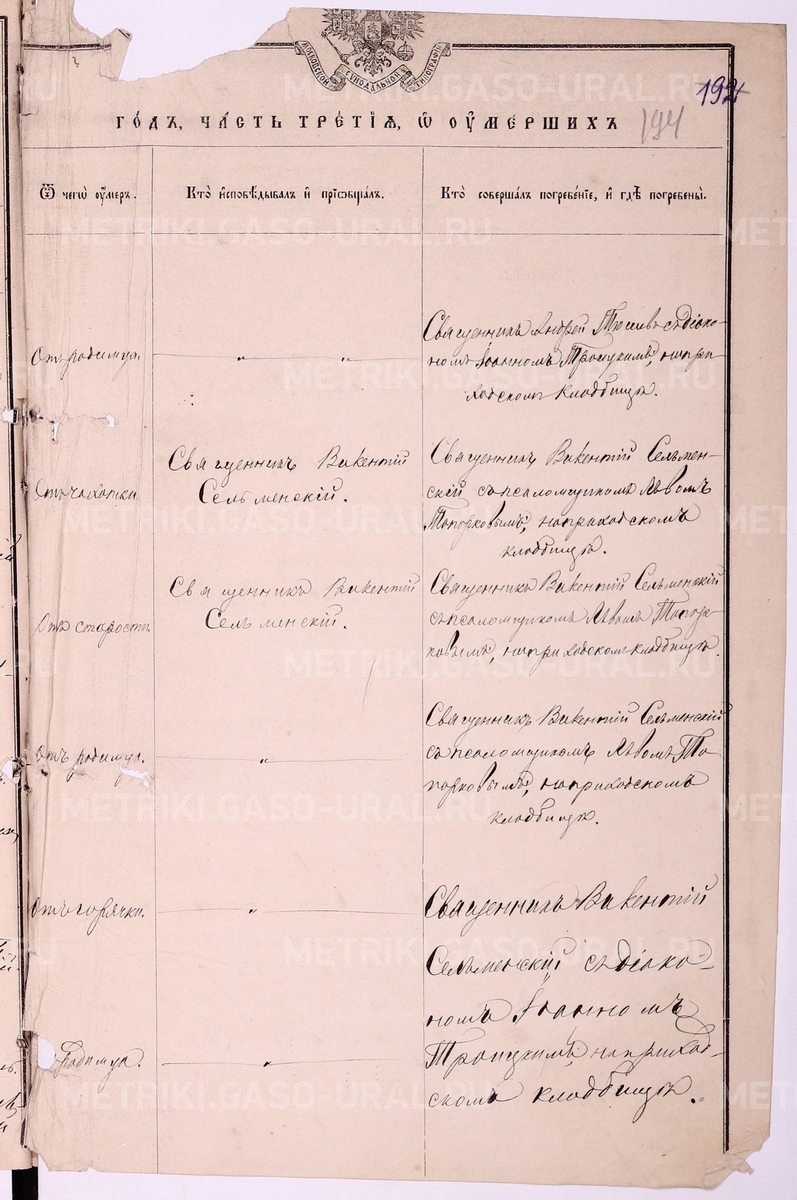 МОСКОВСКОЙ СѴНОДАЛЬНОЙ ТИПОГРАФІИ
192
194
ГО́ДЪ, ЧА́СТЬ ТРЕ́ТІѦ, Ѡ҆ ОУ҆МЕ́РШИХЪ
Ѿ чегѡ̀ оу҆́меръ.
Кто̀ и҆сповѣ́дывалъ и҆ прїѡбща́лъ.
Кто̀ соверша́лъ погребе́нїе, и҆ гдѣ̀ погребены̀.
Отъ родимца.
" "
Священникъ Андрей съ діако-
номъ Іоанномъ Троицкимъ, на при-
ходскомъ кладбищѣ.
Отъ чахотки
Священникъ Викентій
Сельменскій.
Священникъ Викентій Сельмен-
скій съ псаломщикомъ Львомъ
Топорковымъ, на приходскомъ
кладбищѣ.
Отъ старости.
Священникъ Викентій
Сельменскій.
Священникъ Викентій Сельменскій
съ псаломщикомъ Львомъ Топор-
ковымъ, на приходскомъ кладбищѣ.
Отъ родимца.
"
Священникъ Викентій Сельменскій
съ псаломщикомъ Львомъ То-
порковымъ, на приходскомъ
кладбищѣ.
Отъ горячки.
"
Священникъ Викентій
Сельменскій съ діако-
номъ Іоанномъ
Троицкимъ, на приход-
скомъ кладбищѣ.
Родимца.
"
METRIKI.GASO-URAL.RU